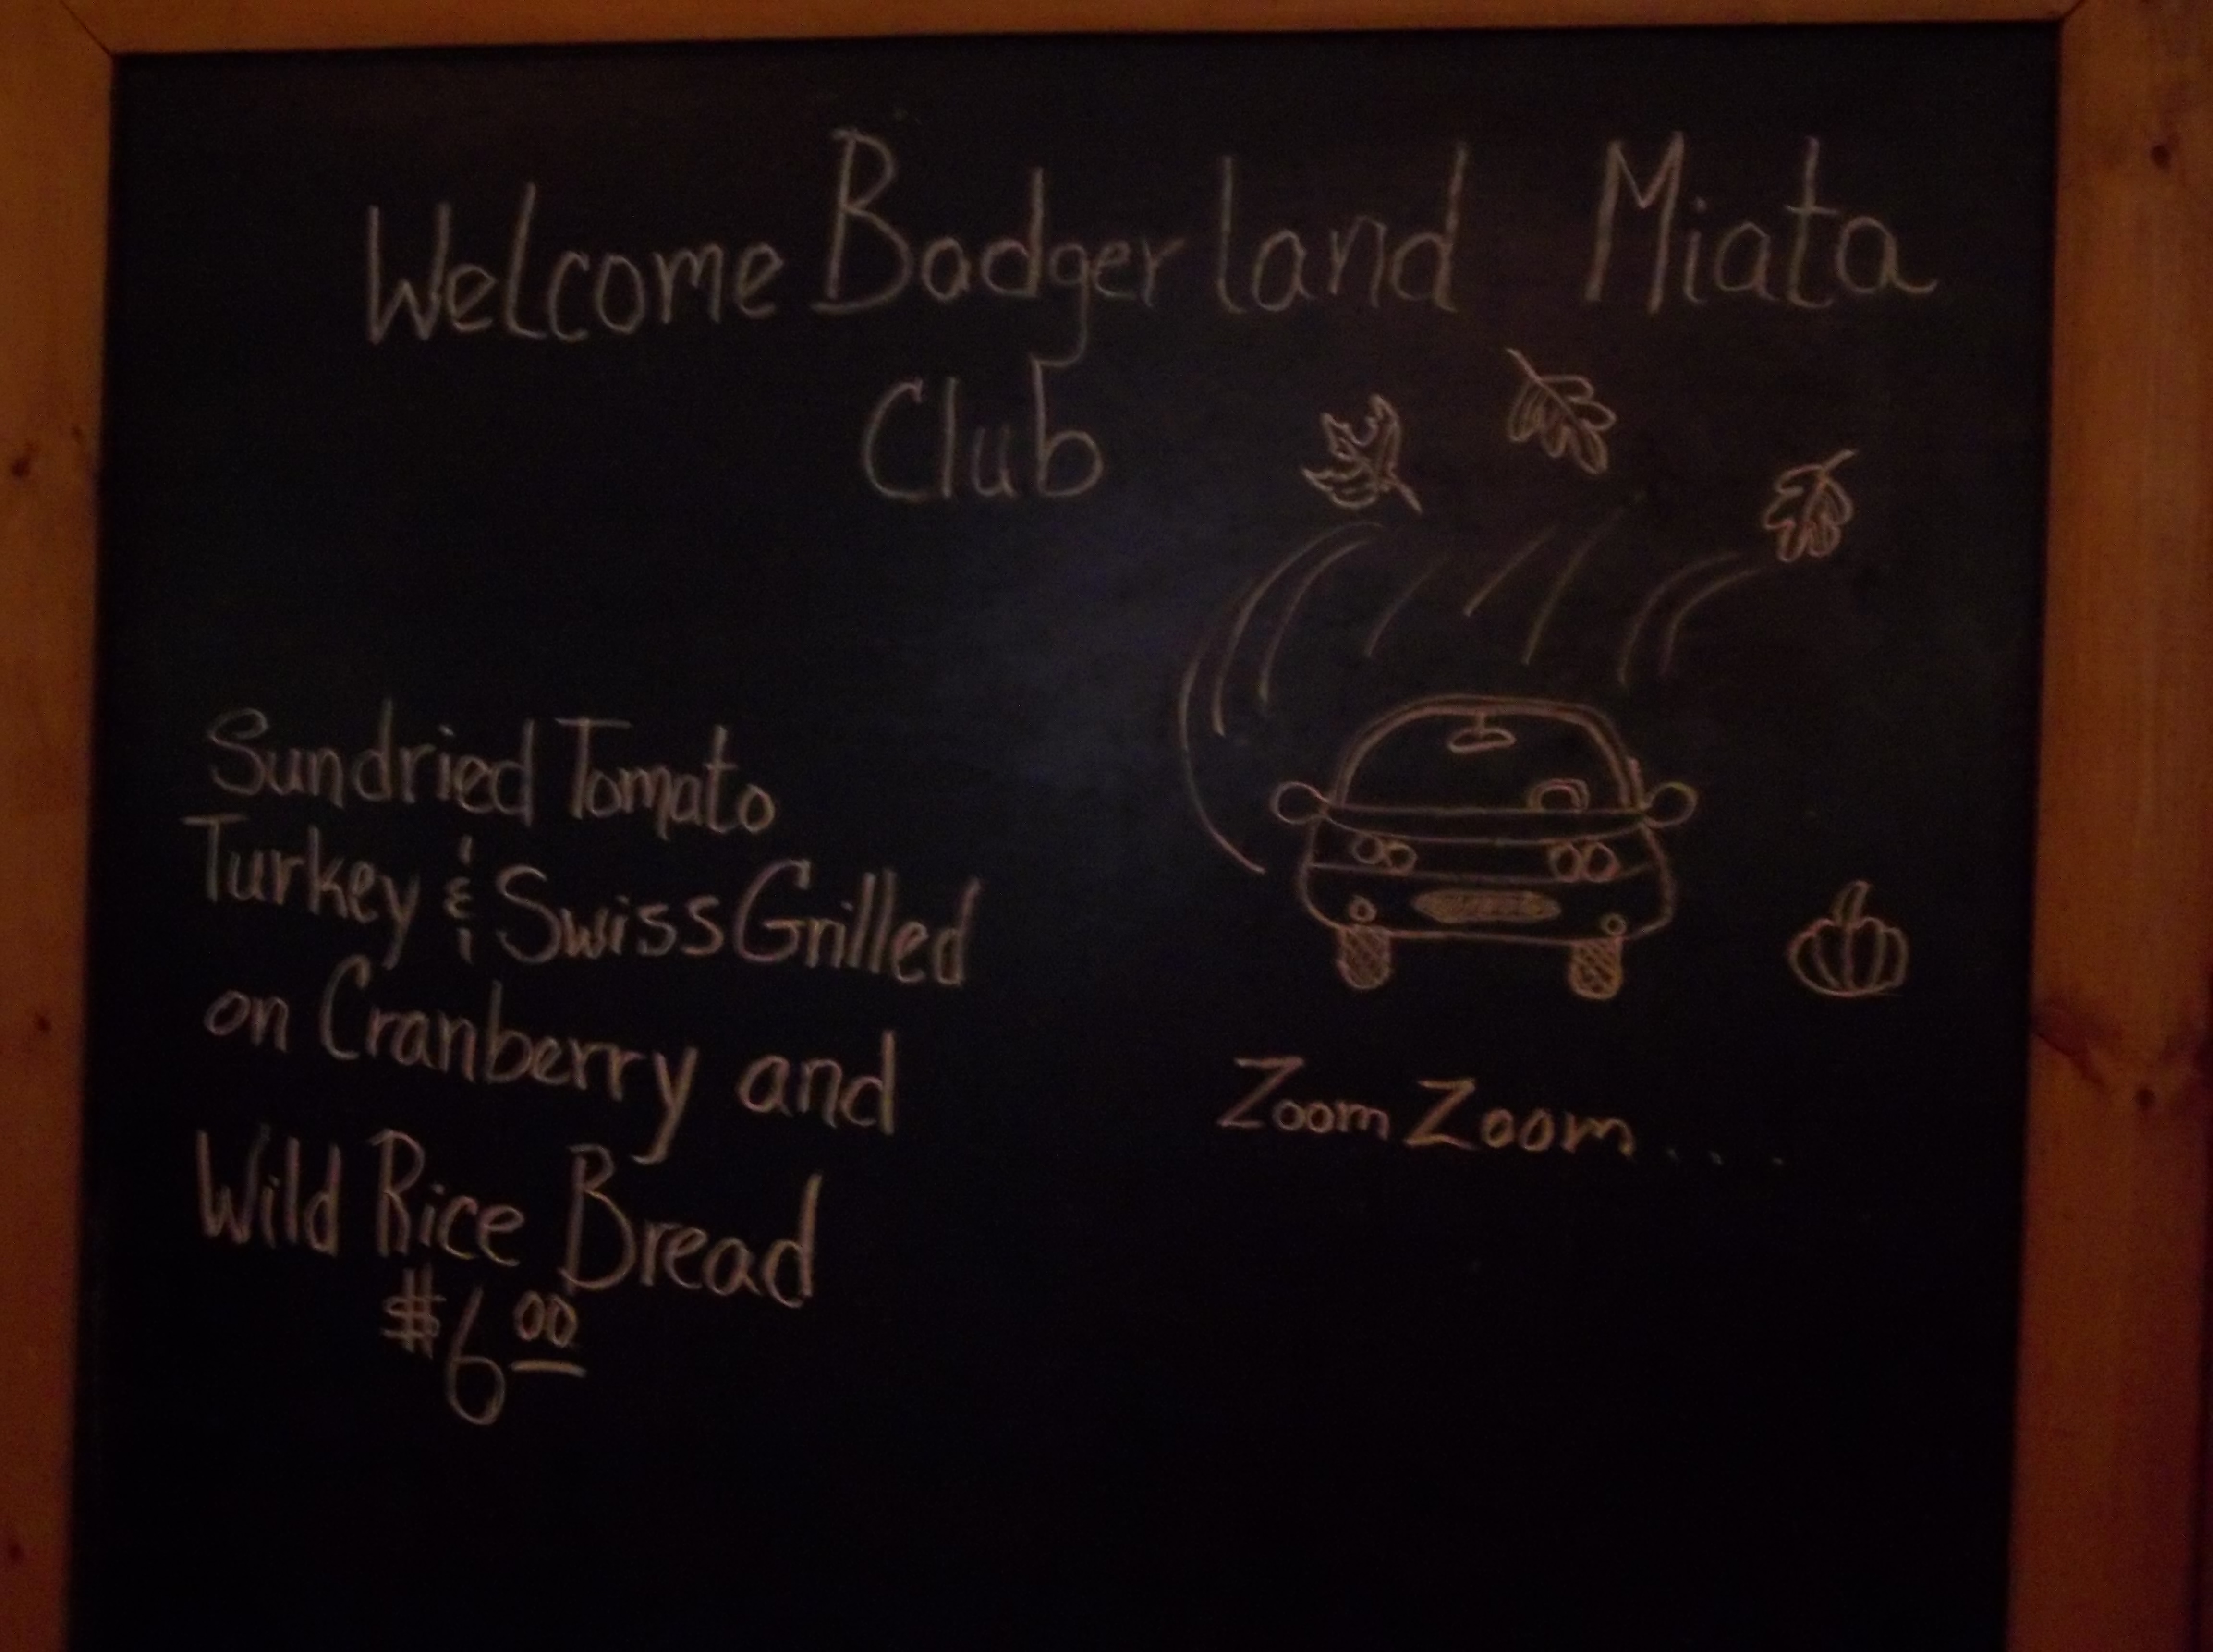 Welcome Badgerland Miata
Club
Sundried Tomato
Turkey & Swiss Grilled
on Cranberry and
Wild Rice Bread
$6.00
Zoom Zoom....